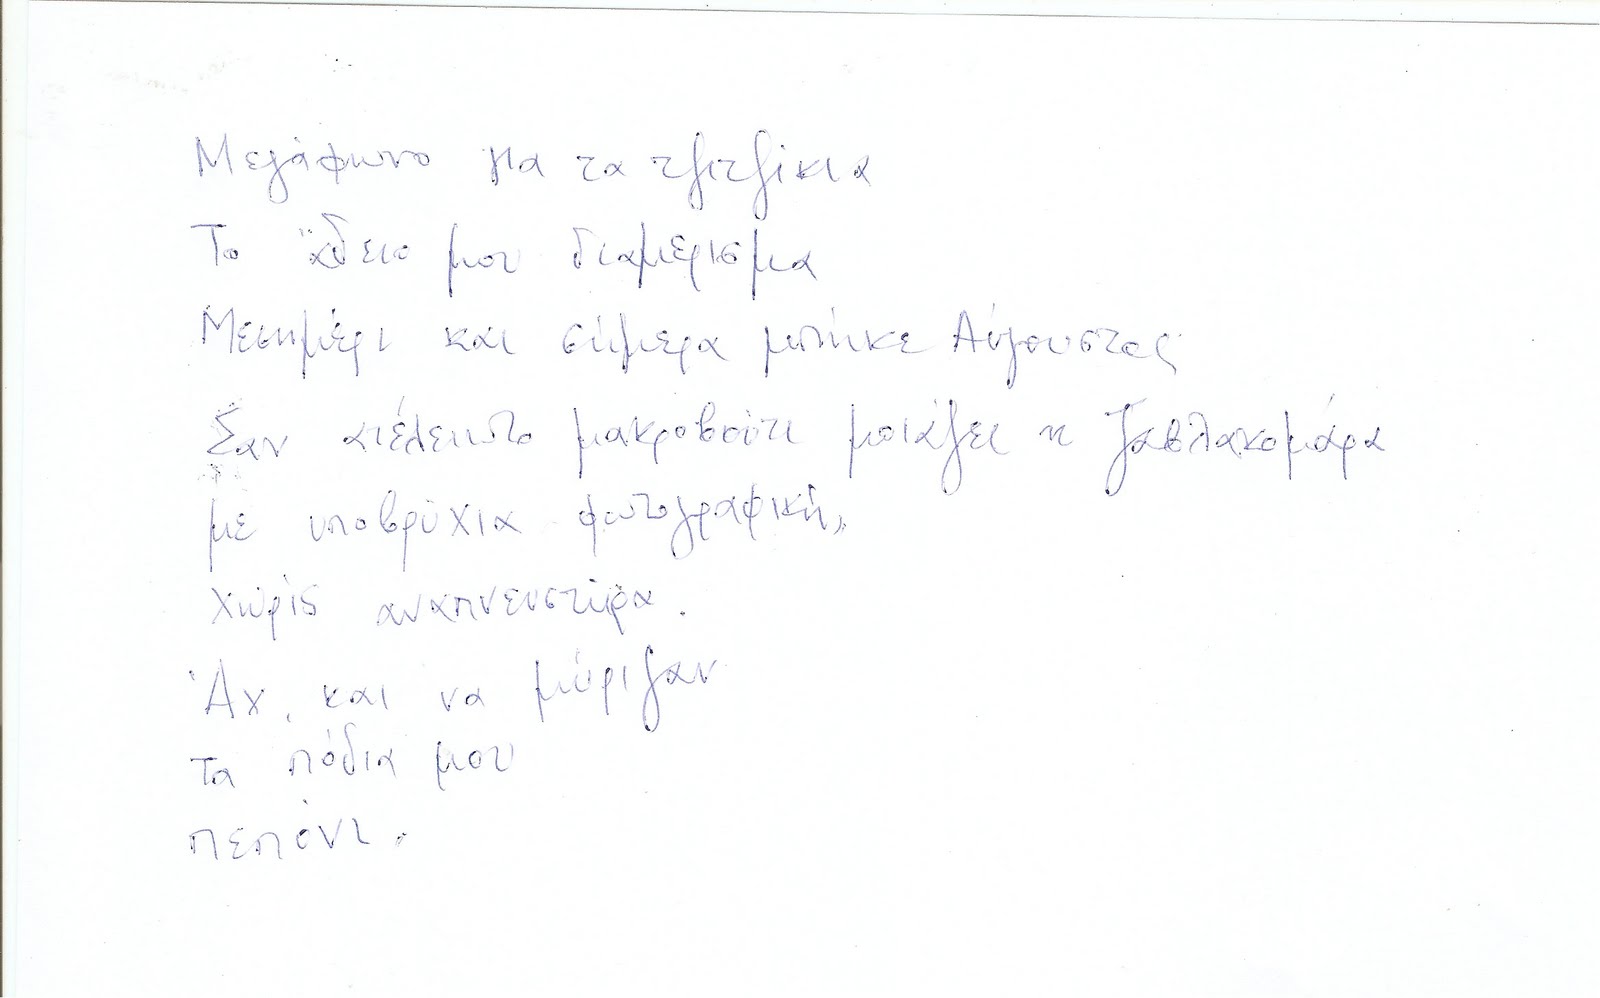 Μεγάφωνο για τα τζιτζίκια
Το άδειο μου διαμέρισμα
Μεσημέρι και σήμερα μπήκε Αύγουστος
Σαν ατέλειωτο μακροβούτι μοιάζει η ζαβλακομάρα
με υποβρύχια φωτογραφική,
χωρίς αναπνευστήρα.
Άχ, και να μύριζαν
τα πόδια μου
πεπόνι.